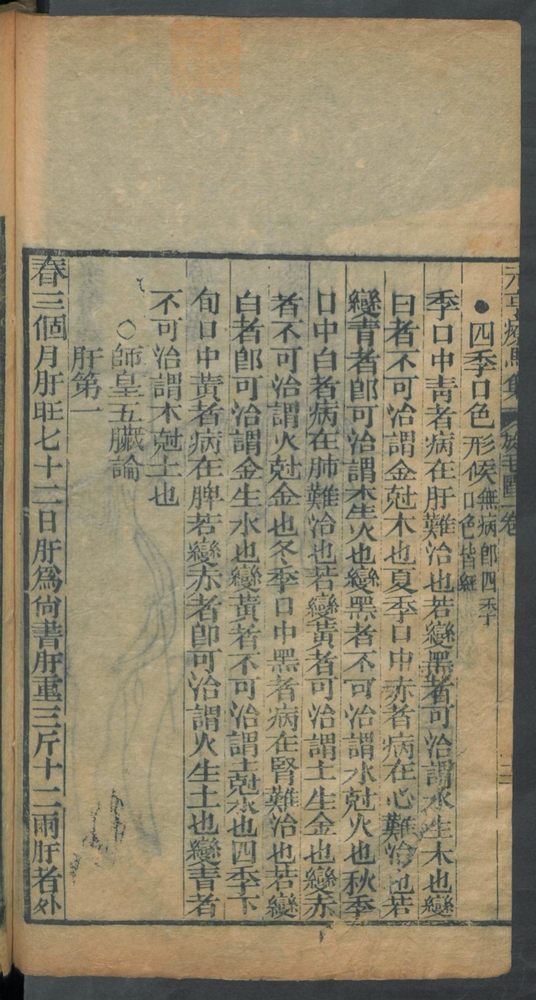 元亨療馬集 卷
●四季口色形候無病卽四季口色皆紅
季口中靑者病在肝難治也若變黑者可治謂水生木也變
白者不可治謂金尅木也夏季口中赤者病在心難治也若
變青者卽可治謂木生火也變黑者不可治謂水尅火也秋季
口中白者病在肺難治也若變黃者可治謂土生金也變赤
者不可治謂火尅金也冬季口中黑者病在腎難治也若變
白者卽可治謂金生水也變黃者不可治謂土尅水也四季下
旬口中黃者病在脾若變赤者卽可治謂火生土也變青者
不可治謂木尅土也
○師皇五臟論
肝第一
春三個月肝旺七十二日肝爲尙書肝重三斤十二兩肝者外